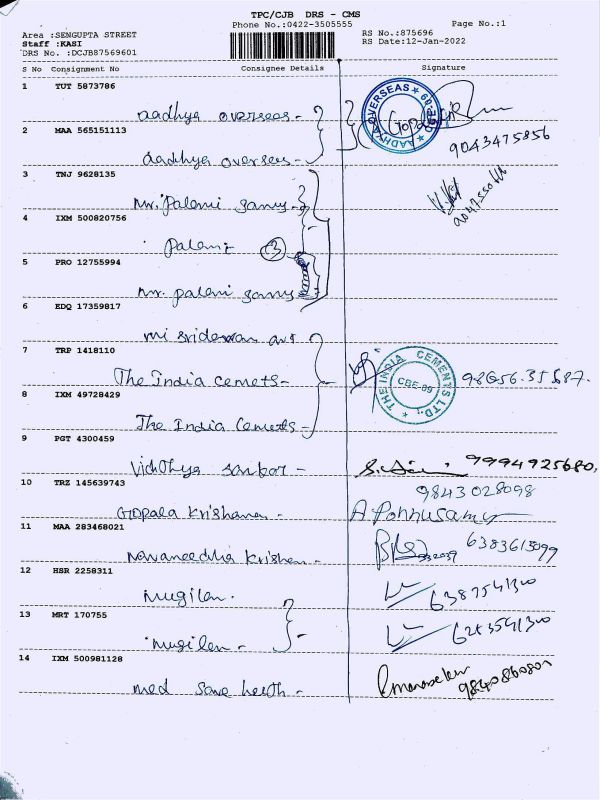 TPC/CJB DRS - CMS
Phone No.:0422-3505555
Page No.:1
Area :SENGUPTA STREET
Staff :KASI
DRS No. :DCJB87569601
RS No.:875696
RS Date:12-Jan-2022
S No Consignment No Consignee Details Signature
1 TUT 5873786
aadhya overseas -
AADHYA OVERSEAS
9043475856
2 MAA 565151113
aadhya overseas -
3 TNJ 9628135
Mr. Palani samy -
4 IXM 500820756
Palani
3
5 PRO 12755994
Mr. palani samy
6 EDQ 17359817
mi sridevan
7 TRP 1418110
The India cemets -
THE INDIA CEMENTS LTD.,
CBE-09
98656.35687.
8 IXM 49728429
The India Cemets -
9 PGT 4300459
Vidhya sankar -
9994925680,
10 TRZ 145639743
9843028098
Gopala Krishana -
A Ponnusamy
11 MAA 283468021
Navaneedha Krishan -
6383613099
12 HSR 2258311
Mugilan.
6387541300
13 MRT 170755
Mugilan -
6283541300
14 IXM 500981128
med save health -
9840860801